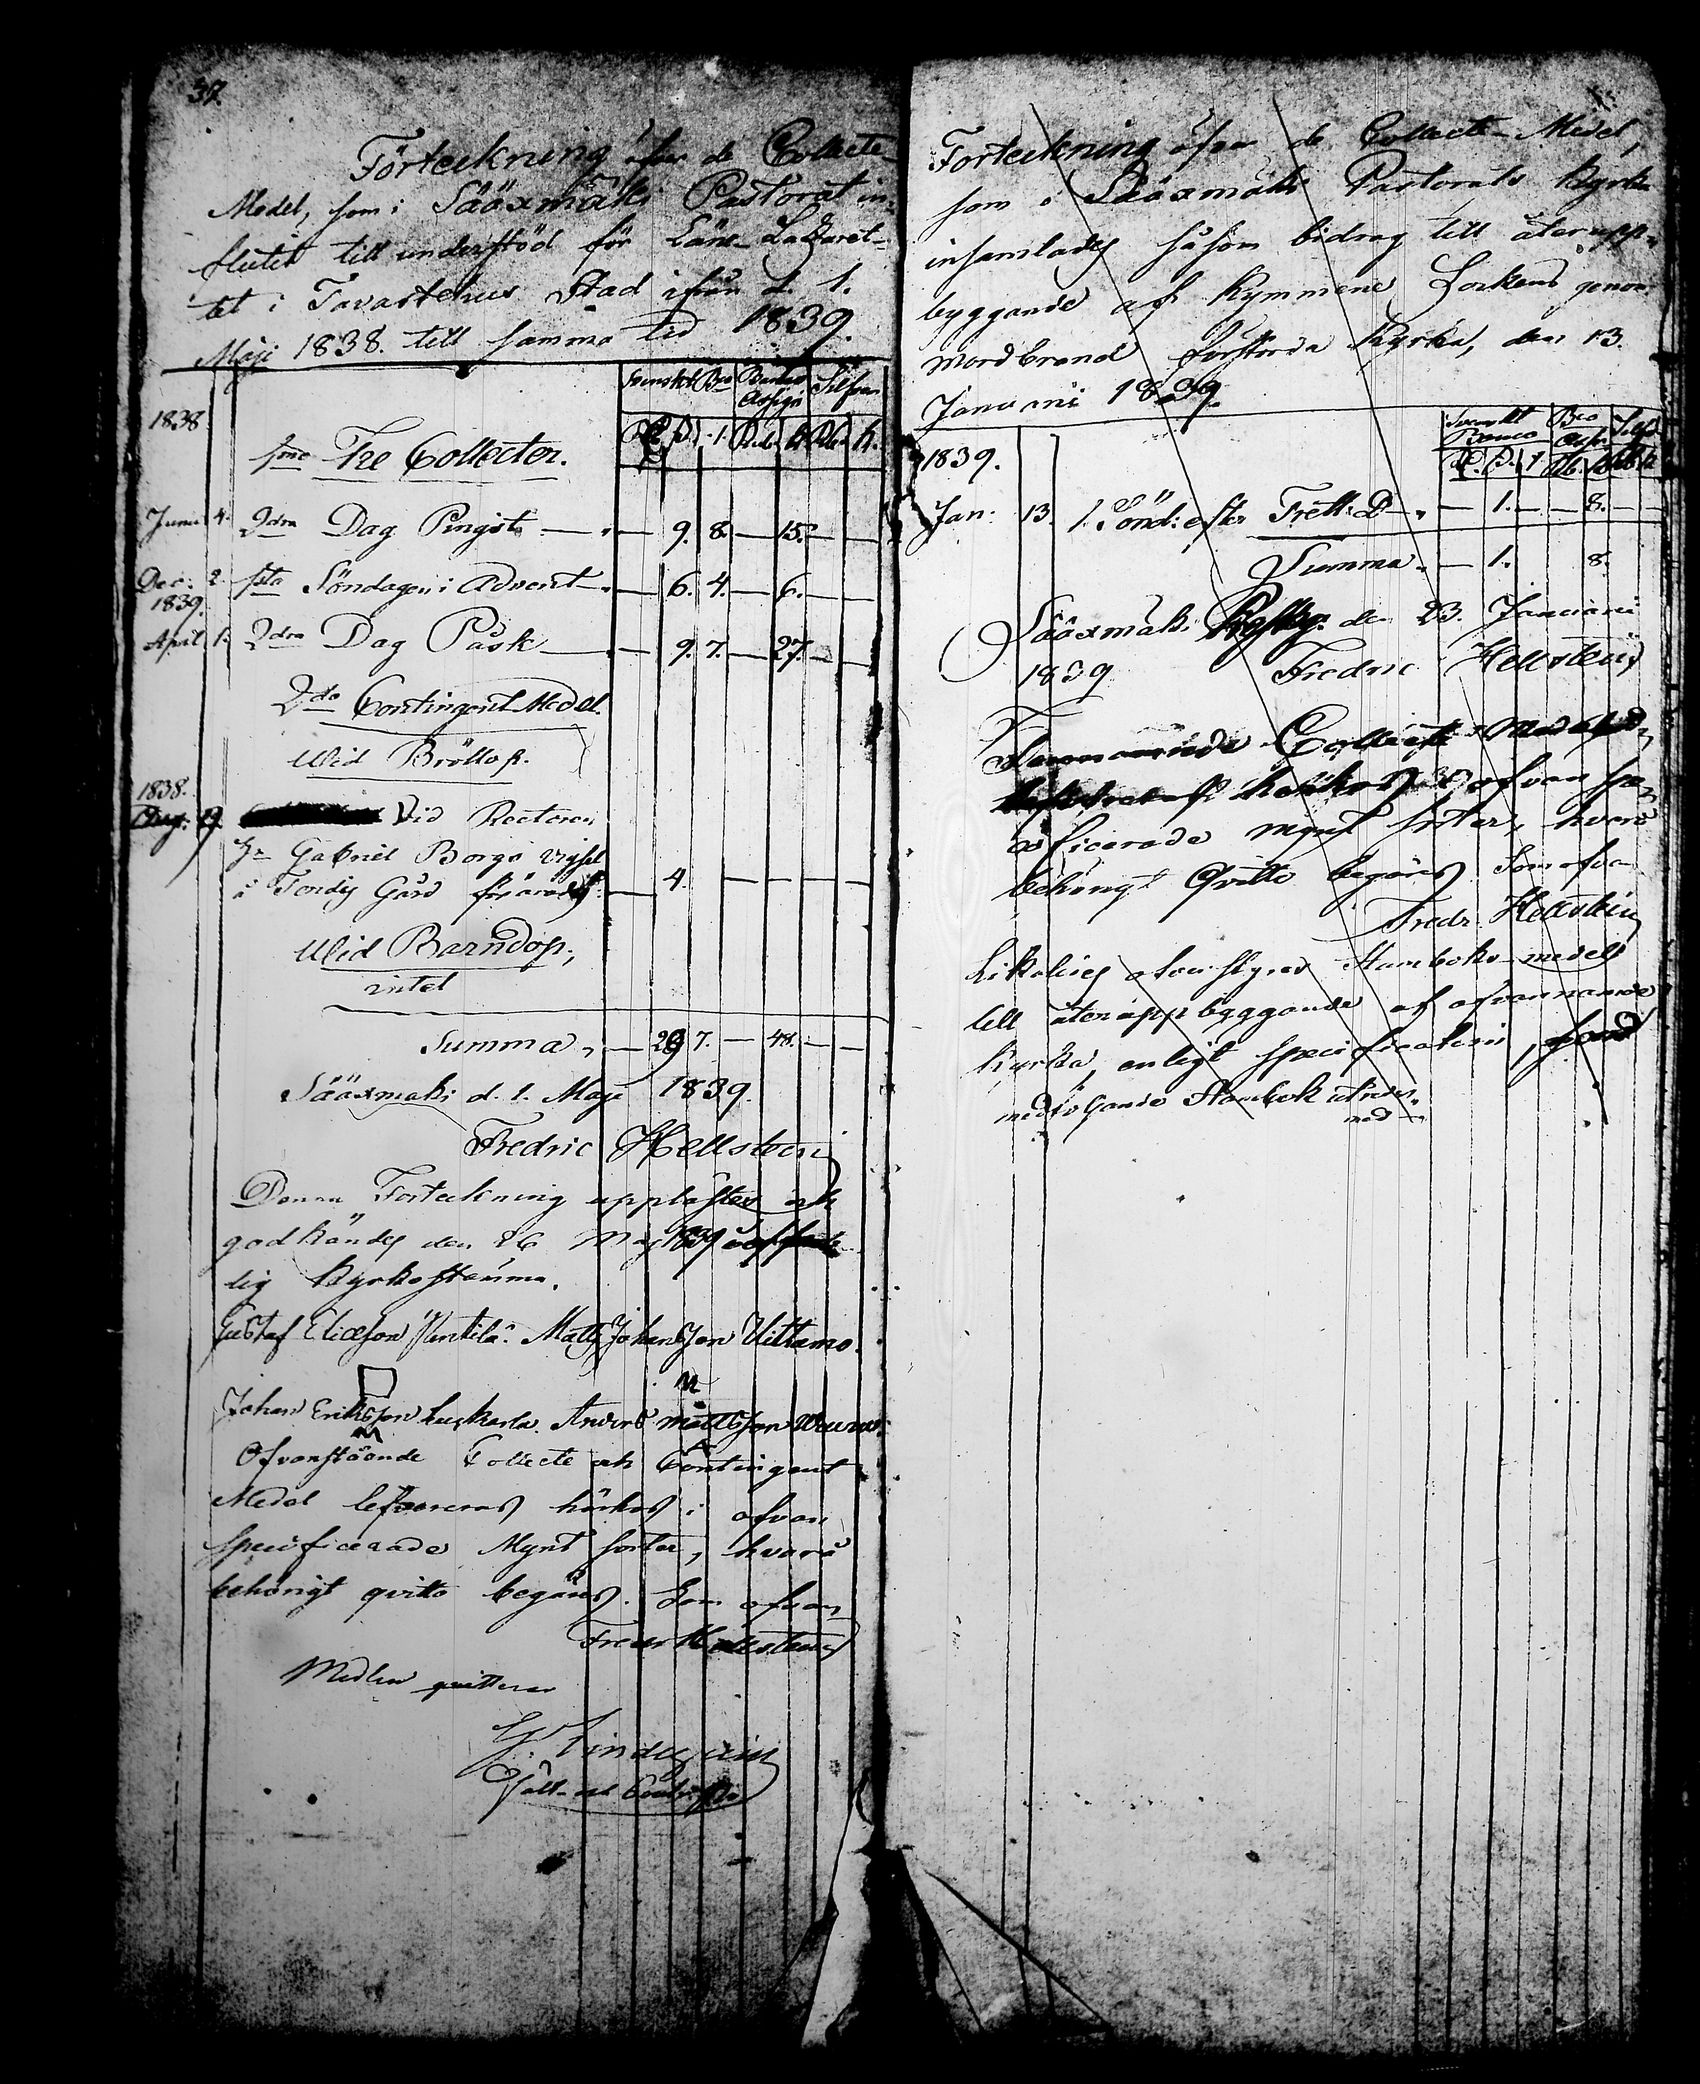 37.
Förteckning öfver de Collecte-
Medel, som i Sääxmäki Pastorat in-
flutit till understöd för Läns-Lazaret-
tet i Tavastehus Stad ifrån d. 1.
Maji 1838. till samma tid 1839.
Svenskt Bco Banco Assign Silfver
R. β. r. Rub. k. Rub. k.
1838
1mo Tre Collecter.
Junii 4. 2dra Dag Pingst — — 9. 8. — 15. — —
Dec. 2. 1sta Söndagen i Advent — — 6. 4. — 6. — —
1839.
April 1. 2dra Dag Påsk — — 9. 7. — 27. — —
2do Contingent Medel.
Wid Bröllop.
1838.
Aug. 9. Vid Rectoren
Hr Gabriel Borgs vigsel
i Tondis Gård förärades — 4. — — — —
Wid Barndop,
intet
Summa, — 29 7. — 48. — —
Sääxmäki d. 1. Maji 1839.
Fredric Hellsten
Denna Förteckning upplästes och
godkändes den 26 Maj 1839 vid
lig Kyrkostämma.
Gustaf Elicsson Anttila. Matts Johansson Uittamo.
Johan Eriksson Anders Mattsson
Ofvanstående Collecte och Contingent
Medel lefvereras härhos i ofvan
specificerade Mynt sorter, hvarå
behörigt qvitto begäres. Som ofvan
Fredr Hellsten
Medlen qvitteras

Förteckning öfver de Collecte-Medel,
som i Sääxmäki Pastorats Kyrka
insamlades såsom bidrag till återupp-
byggande af Kymmene Sockens genom
mordbrand förstörda Kyrka, den 13.
Januarii 1839.
Svenskt Banco Bco Assn Silfv
R. β. r. Rb. k Rb k
1839.
Jan: 13. 1. Sönd: efter Trett: D — — 1. — — 8. — —
Summa. — 1. 8.
Sääxmäki den 23. Januarii
1839 Fredric Hellsten
Collecte Medel
härhos i ofvan spe-
cificerade mynt sorter, hvarå
behörigt Qvitto begäres. Som ofvan
Fredr. Hellsten
Likaledes Stamboks-medel
till återuppbyggande af ofvannämnde
Kyrka, enligt specification,
medföljande Stambok
med